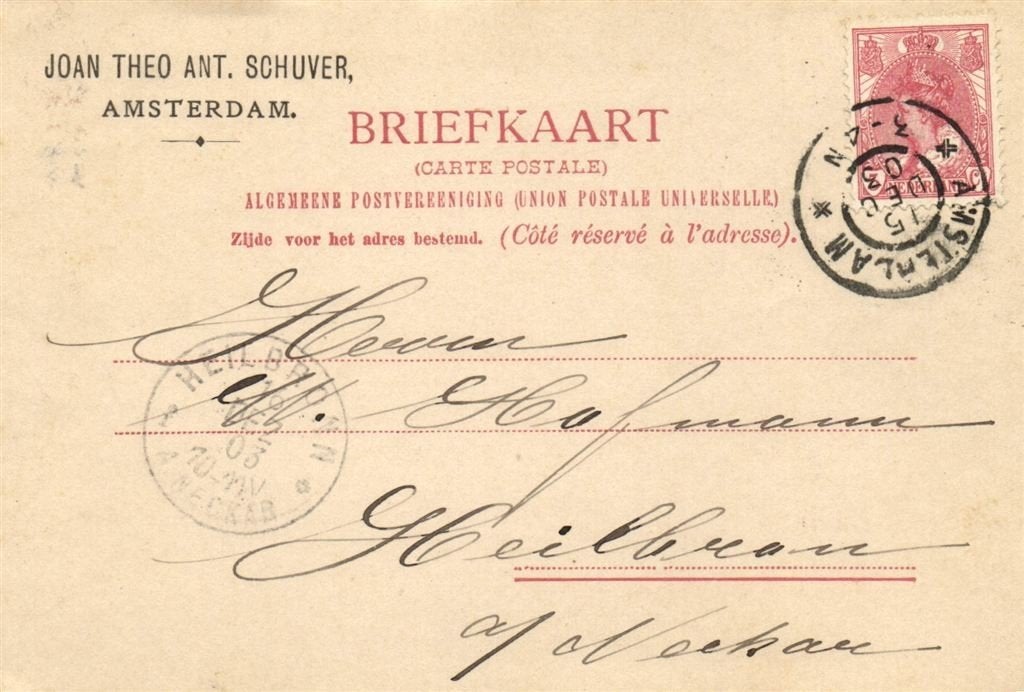 JOAN THEO ANT. SCHUVER,
AMSTERDAM.
BRIEFKAART
(CARTE POSTALE)
ALGEMEENE POSTVEREENIGING (UNION POSTALE UNIVERSELLE)
Zijde voor het adres bestemd. (Côté réservé à l'adresse).
NEDERLAND
AMSTERDAM
15 DEC 03
3-4 N
Herrn
W. Hofmann
Heilbron
a/Neckar
HEILBRONN
DEZ
03
10-11V
A. NECKAR